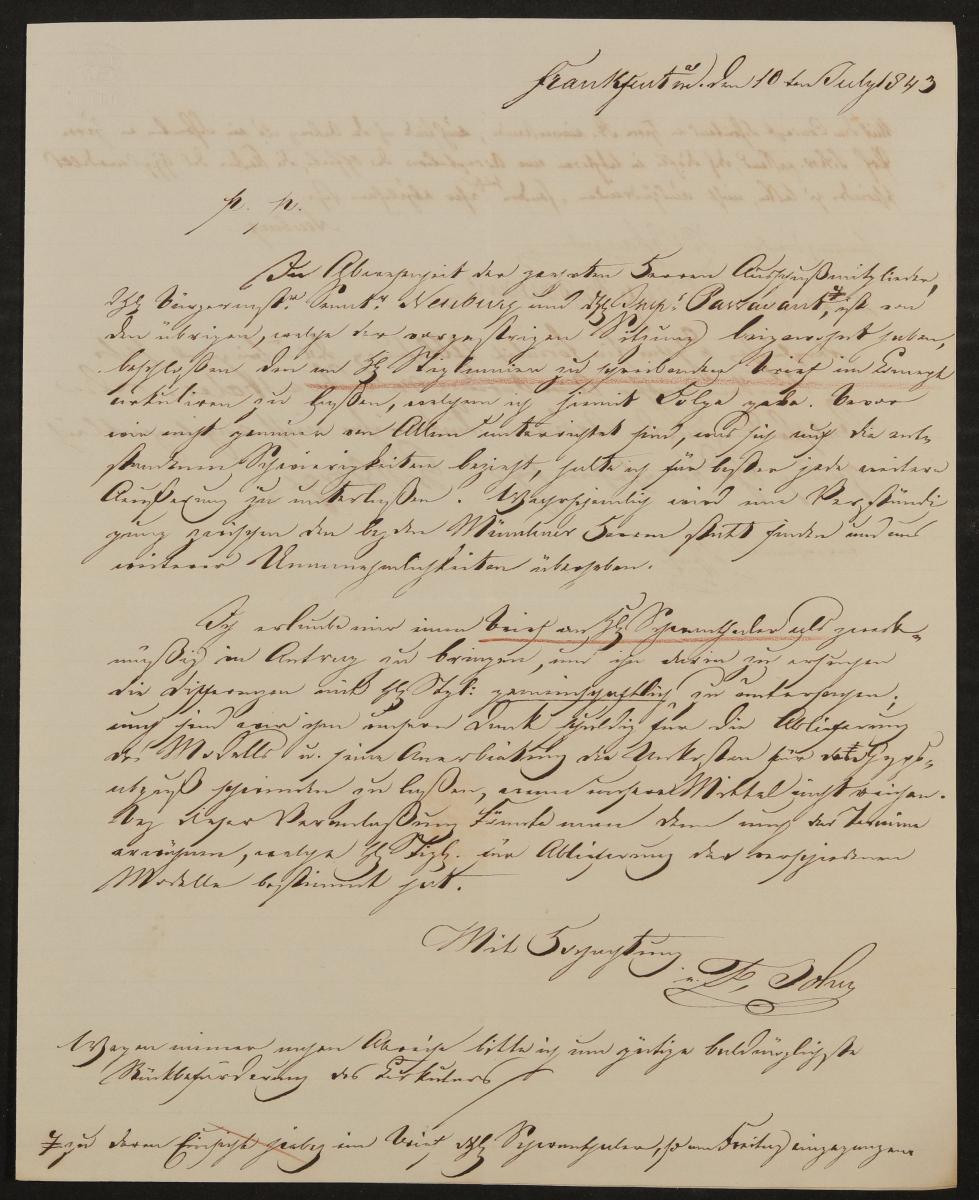 Frankfurt a/M. den 10 ten July 1843
p. p.
In Abwesenheit der geehrten Herren Ausschußmitglieder,
Bürgermstr. Senatr. Neuburg und Insp. Passavant, ist von
den übrigen, welche der vorgestrigen Sitzung beigewohnt haben,
beschloßen den an H. Stiglmaier zu schreibenden Brief im Concept
cirkuliren zu laßen, welchem ich hiemit Folge gebe. Bevor
wir nicht genauer von Allem unterrichtet sind, was sich auf die ent-
standenen Schwierigkeiten bezieht, halte ich für beßer jede weitere
Aeußerung zu unterlaßen. Wahrscheinlich wird eine Verständi
gung zwischen den beyden Münchner Herren statt finden und uns
weiterer Unannehmlichkeiten überheben.
Ich erlaube mir einen Brief an H. Schwanthaler als zweck-
mäßig in Antrag zu bringen, um ihn darin zu ersuchen
die Differenzen mit H. Stgl: gemeinschaftlich zu untersuchen;
auch sind wir ihm unsern Dank schuldig für die Ablieferung
des Modells u. seine Anerbietung die Unkosten für den Gyps-
abguß zu laßen, wenn unsere Mittel nicht reichen.
Bey dieser Veranlaßung könnte man denn auch der Termine
erwähnen, welche H. Stigl. für Ablieferung der verschiedenen
Modelle bestimmt hat.
Mit Hochachtung
Wegen meiner nahen Abreise bitte ich um gütige baldmöglichste
Rückbeförderung des Cirkulars
zu deren Einsicht hiebey ein Brief H. Schwanthaler, so am Freitag eingegangen